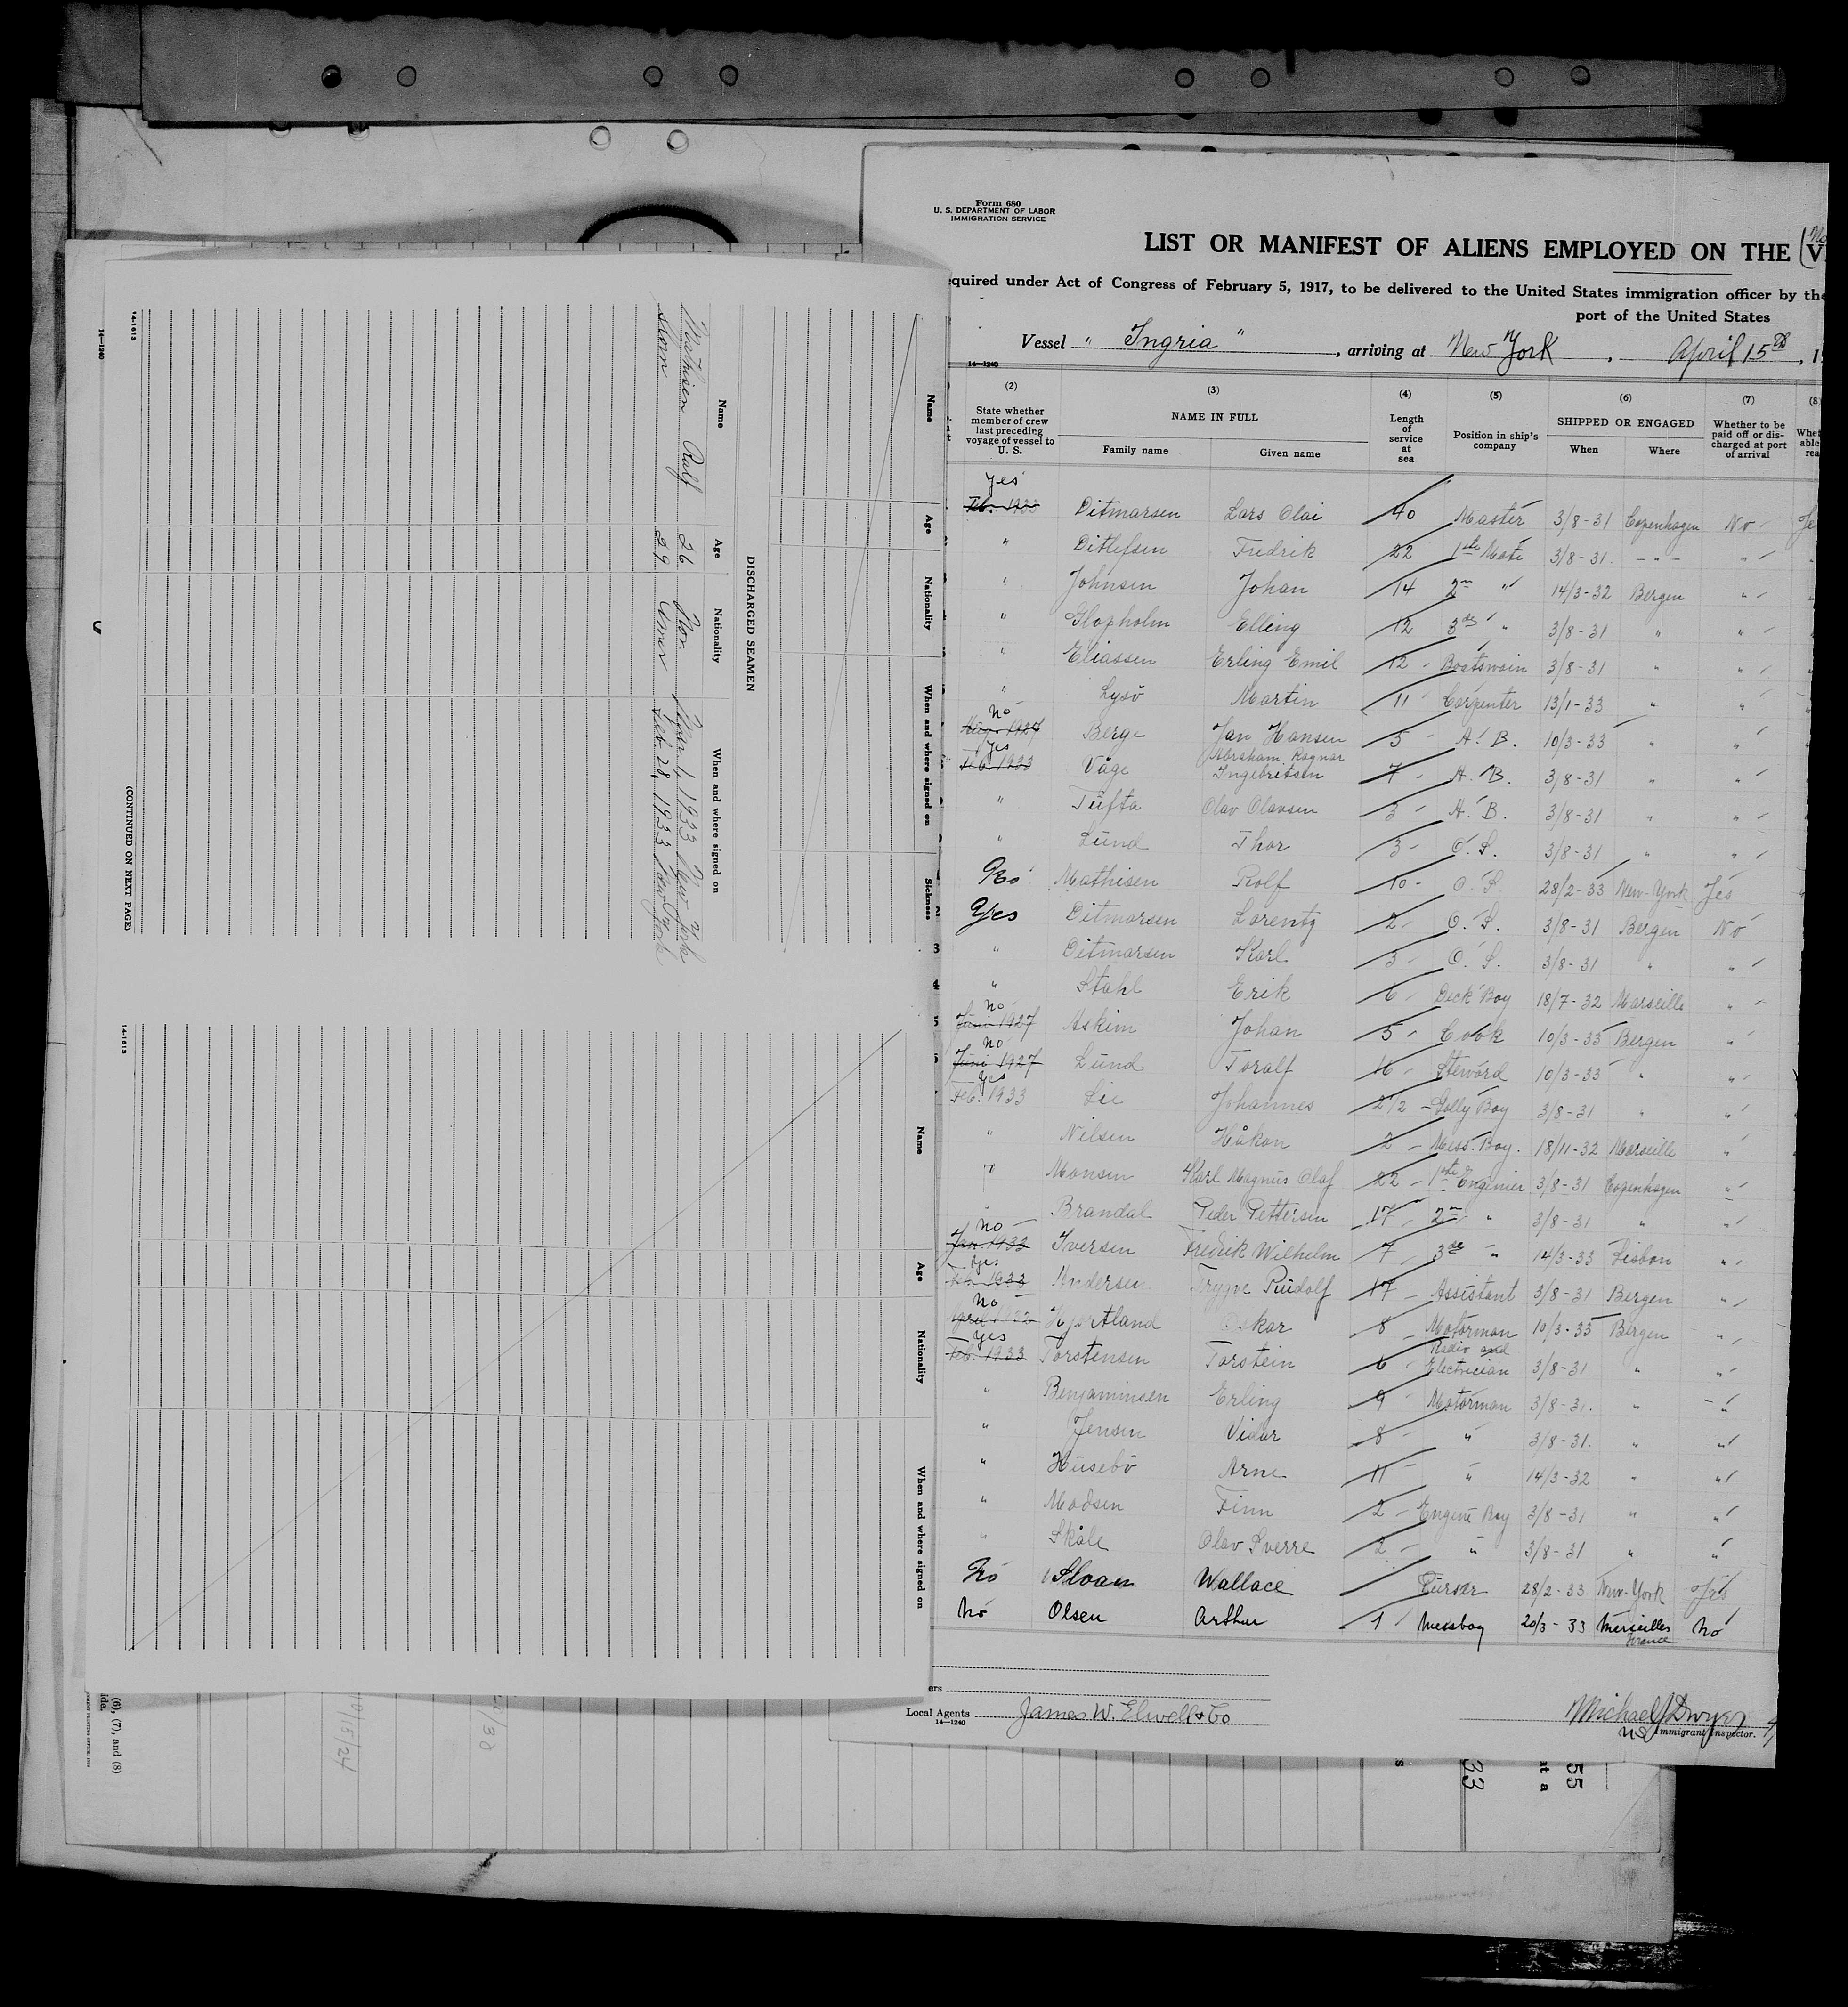 Form 680
U. S. DEPARTMENT OF LABOR
IMMIGRATION SERVICE
LIST OR MANIFEST OF ALIENS EMPLOYED ON THE
equired under Act of Congress of February 5, 1917, to be delivered to the United States immigration officer by the
port of the United States
Vessel "Ingria", arriving at New York, April 15th, 19
14—1240
(2) (3) (4) (5) (6) (7) (8)
State whether member of crew last preceding voyage of vessel to U. S.
NAME IN FULL
Family name Given name
Length of service at sea
Position in ship's company
SHIPPED OR ENGAGED
When Where
Whether to be paid off or discharged at port of arrival
Yes
Feb. 1933 Ditmarsen Lars Olai 40 Master 3/8-31 Copenhagen No
" Ditlefsen Fredrik 22 1ste Mate 3/8-31. -"- "
" Johnsen Johan 14 2n " 14/3-32 Bergen "
" Glopholm Elling 12 3de " 3/8-31 " "
" Eliassen Erling Emil 12 - Boatswain 3/8-31 " "
" Lysö Martin 11 Carpenter 13/1-33 " "
No
1927 Berge Jan Hansen 5 - A. B. 10/3-33 " "
Yes Abraham Ragnar
Feb. 1933 Våge Ingebritsen 7 - A. B. 3/8-31 " "
" Tufta Olav Olavsen 3 - A. B. 3/8-31 " "
" Lund Thor 3 - O. S. 3/8-31 " "
No Mathisen Rolf 10 - O. S. 28/2-33 New-York Yes
Yes Ditmarsen Lorentz 2 - O. S. 3/8-31 Bergen No
3 " Ditmarsen Karl 3 - O. S. 3/8-31 " "
4 " Stahl Erik 6 - Deck Boy 18/7-32 Marseille "
No
5 Juni 1927 Askim Johan 5 - Cook 10/3-33 Bergen "
No
Juni 1927 Lund Toralf 16 - Steward 10/3-33 " "
Yes
Feb. 1933 Lie Johannes 2 1/2 - Golly Boy 3/8-31 " "
" Nilsen Håkon 2 - Mess. Boy. 18/11-32 Marseille "
" Monsen Karl Magnus Olaf 22 - 1ste Enginier 3/8-31 Copenhagen "
" Brandal Peder Pettersen 17 - 2n " 3/8-31 " "
No
Jan. 1933 Iversen Fredrik Wilhelm 7 - 3de " 14/3-33 Lisbon "
Yes
Feb. 1933 Andersen Trygve Rudolf 17 - Assistant 3/8-31 Bergen "
No
April 1932 Hjortland Oskar 8 - Motorman 10/3-33 Bergen "
Yes Radio and
Feb. 1933 Torstensen Torstein 6 - Electrician 3/8-31 " "
" Benjaminsen Erling 9 - Motorman 3/8-31. " "
" Jensen Vidar 8 - " 3/8-31. " "
" Husebö Arne 11 - " 14/3-32 " "
" Madsen Finn 2 - Engine Boy 3/8-31 " "
" Skåle Olav Sverre 2 - " 3/8-31 " "
No Sloan Wallace Purser 28/2-33 New-York Yes
No Olsen Arthur 1 Messboy 20/3-33 Merseilles No
France
ers
Local Agents James W. Elwell & Co
14—1240
Michael J Dwyer
Immigrant Inspector.
Name Age Nationality When and where signed on Sickness
DISCHARGED SEAMEN
Name Age Nationality When and where signed on
Mathisen Rolf 26 Nor.
Sloan 29 Amer Feb. 28, 1933 New York
(CONTINUED ON NEXT PAGE)
14-1613
14—1240
Name Age Nationality When and where signed on
14-1613
(6), (7), and (8)
ide.
10/15/24
33
55
at a
s